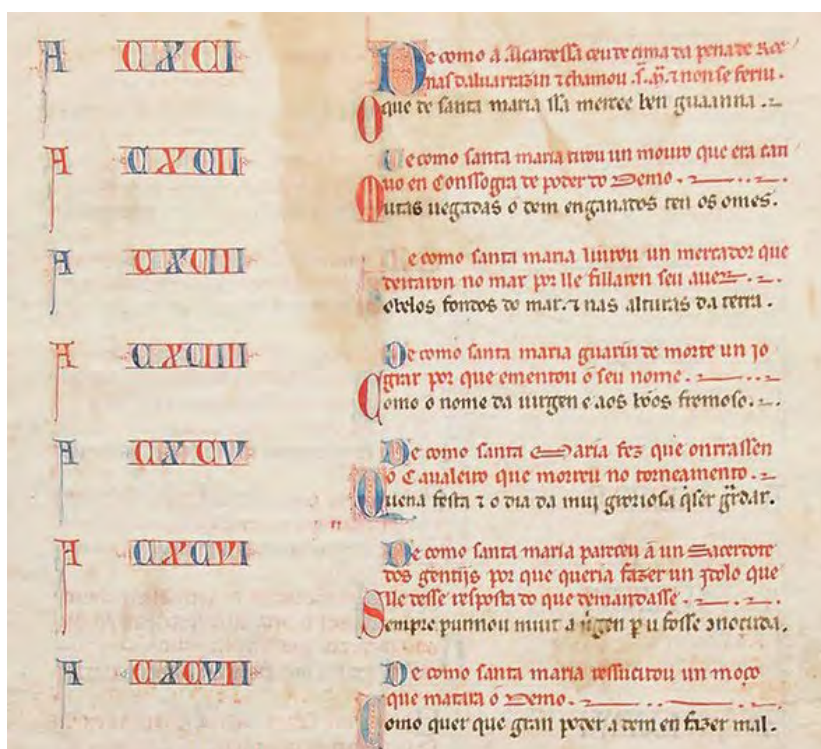 A CXCI De como a Alcaidessa ceu de cima da pena de Roe
nas daluarrazin ⁊ chamou .s̃. m̃. ⁊ non se feriu.
O que de santa maria ssa mercee ben guaanna.
A CXCII De como santa maria tirou un mouro que era cati
uo en Conssogra de poder do Demo.
Muitas uegadas o dem enganados ten os omes.
A CXCIII De como santa maria liurou un mercador que
deitaron no mar por lle fillaren seu auer.
Sobelos fondos do mar. ⁊ nas alturas da terra.
A CXCIIII De como santa maria guariu de morte un jo
grar por que ementou o seu nome.
Como o nome da uirgen e aos bõos fremoso.
A CXCV De como santa Maria fez que onrrassen
o Caualeiro que morreu no torneamento.
Quena festa ⁊ o dia da mui groriosa q̃ser gr̃dar.
A CXCVI De como santa maria pareceu a un Sacerdote
dos gentijs por que queria fazer un jdolo que
lle desse resposta do que demandasse.
Sempre punnou muit a ũgen p u fosse
A CXCVII De como santa maria ressucitou un moço
que matara o Demo.
Como quer que gran poder a dem en fazer mal.